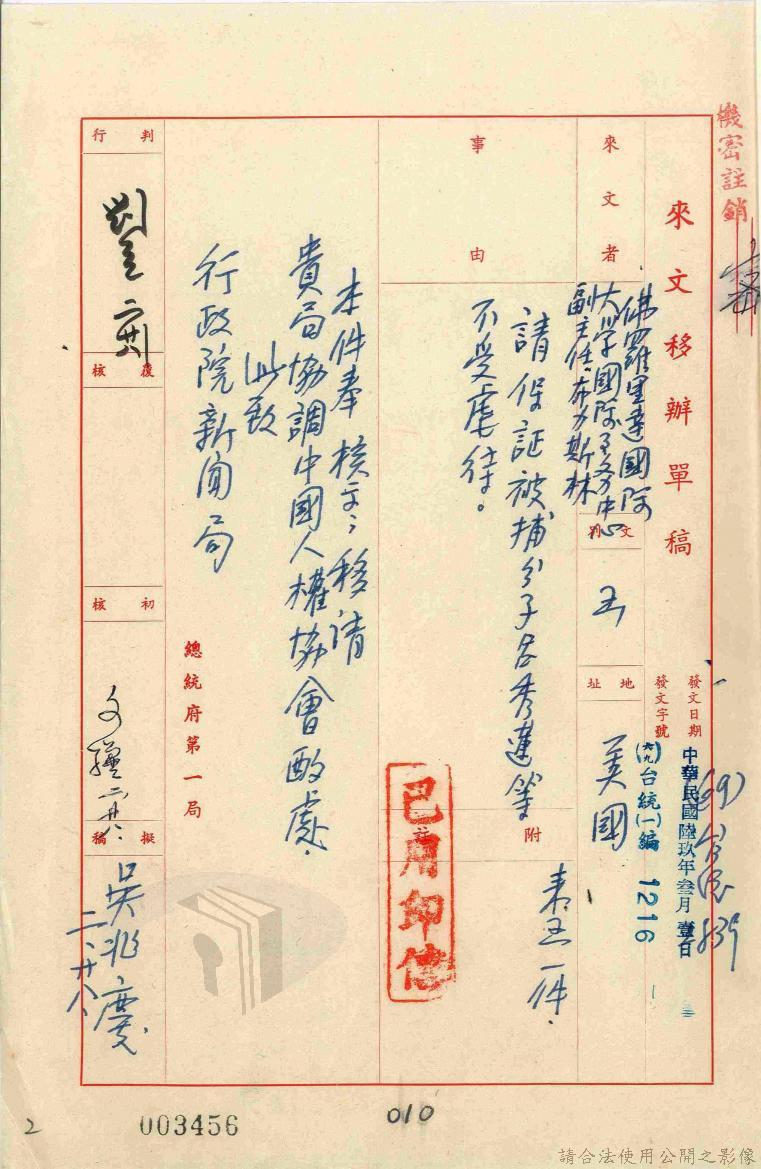 機密註銷
來文移辦單稿
發文日期
中華民國陸玖年叁月壹日
發文字號
(六九)台統(一)編 1216
來文者
佛羅里達國際
大學國際事務中心
副主任布力斯林
文別
地址
美國
事由
請保証被捕分子呂秀蓮等
不受虐待。
附註
来函一件。
已用印信
本件奉 核交:移請
貴局協調中國人權協會酌處。
此致
行政院新聞局
總統府第一局
判行
覆核
初核
擬稿
吳兆慶
二、廿八、
2
003456
010
請合法使用公開之影像